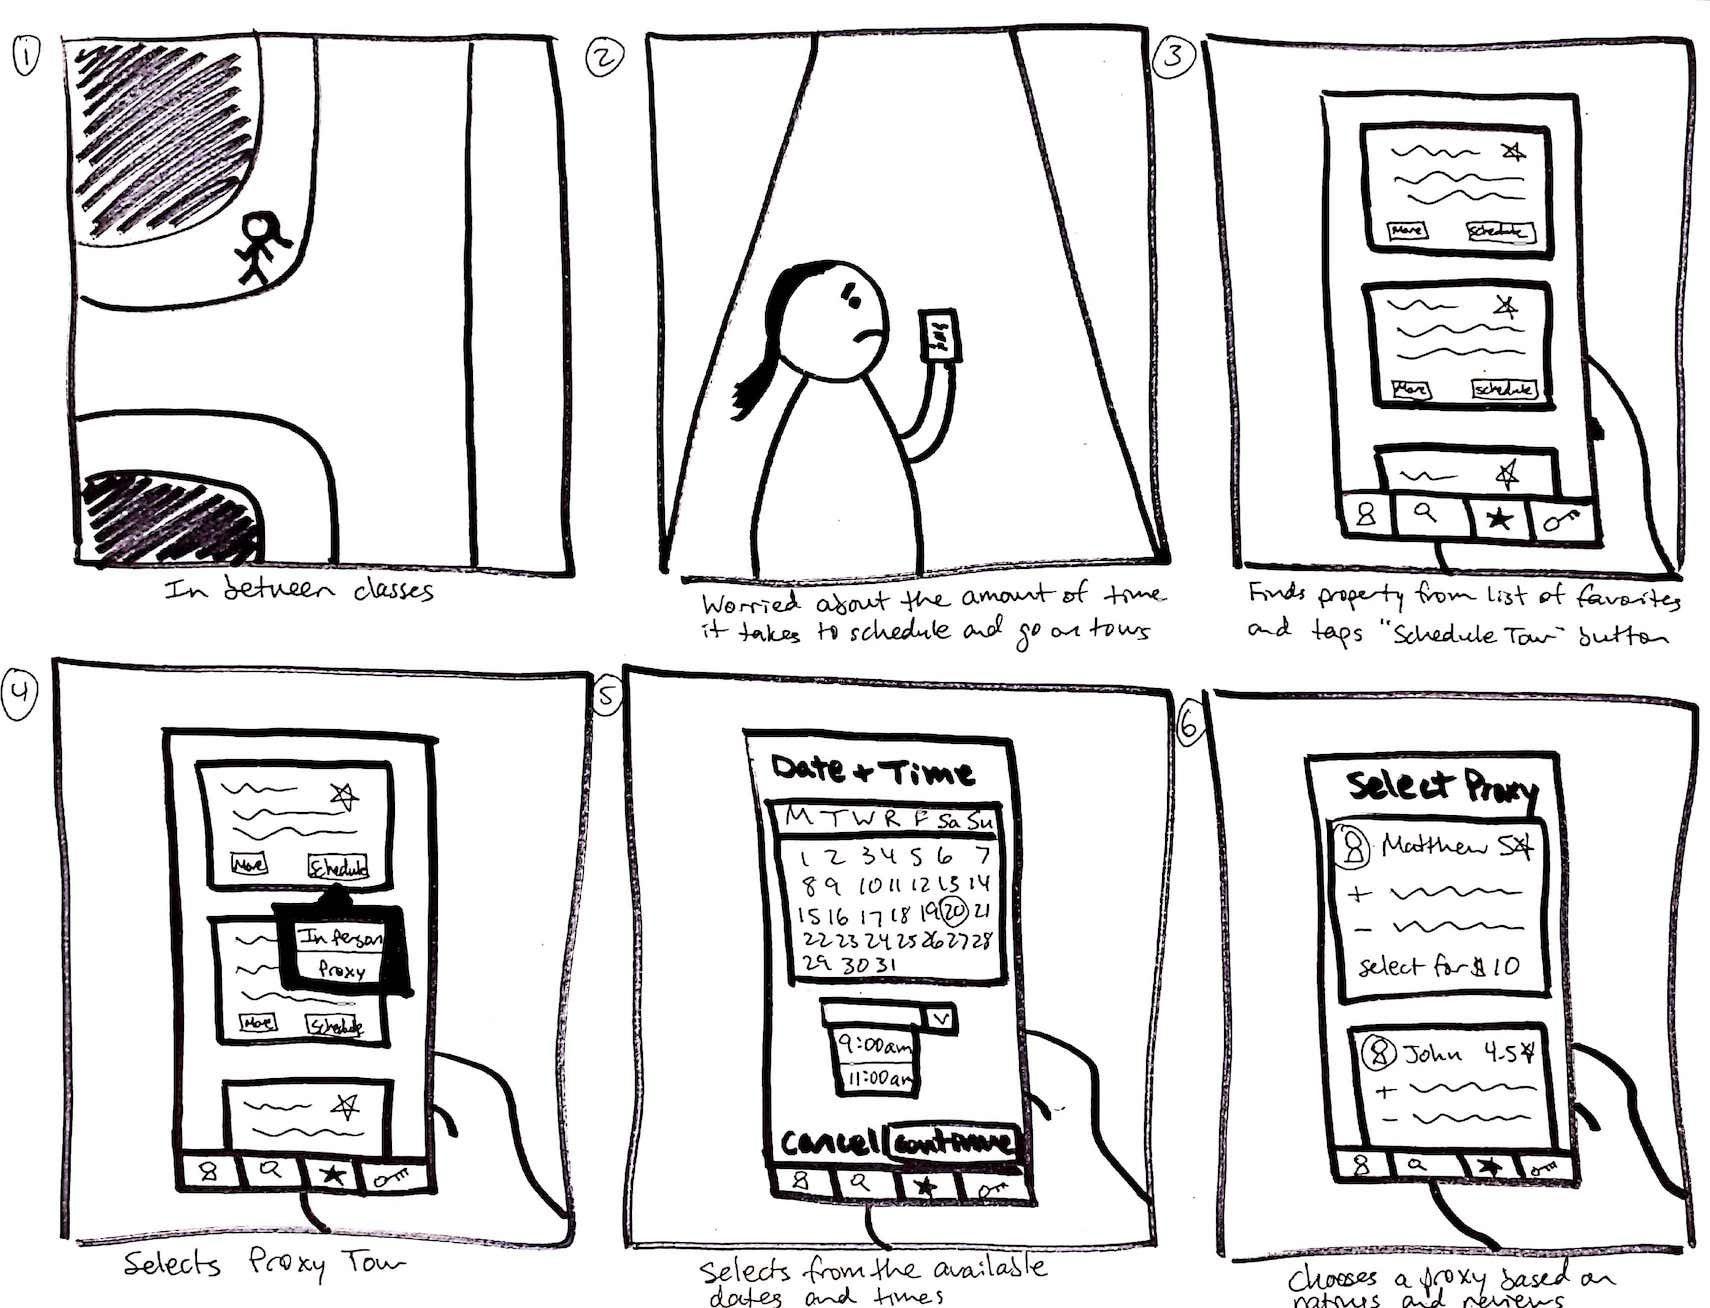 1
In between classes
2
Worried about the amount of time
it takes to schedule and go on tours
3
More Schedule
More Schedule
Finds property from list of favorites
and taps "Schedule Tour" button
4
More Schedule
In Person
Proxy
More Schedule
Selects Proxy Tour
5
Date + Time
M T W R F Sa Su
1 2 3 4 5 6 7
8 9 10 11 12 13 14
15 16 17 18 19 20 21
22 23 24 25 26 27 28
29 30 31
V
9:00am
11:00am
Cancel Continue
Selects from the available
dates and times
6
Select Proxy
Matthew 5
+
-
select for $10
John 4.5
+
-
Chooses a proxy based on
ratings and reviews